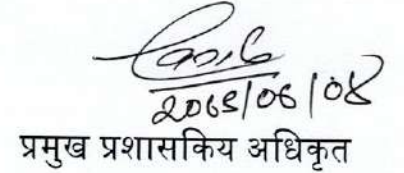 2065/06/08
प्रमुख प्रशासकिय अधिकृत